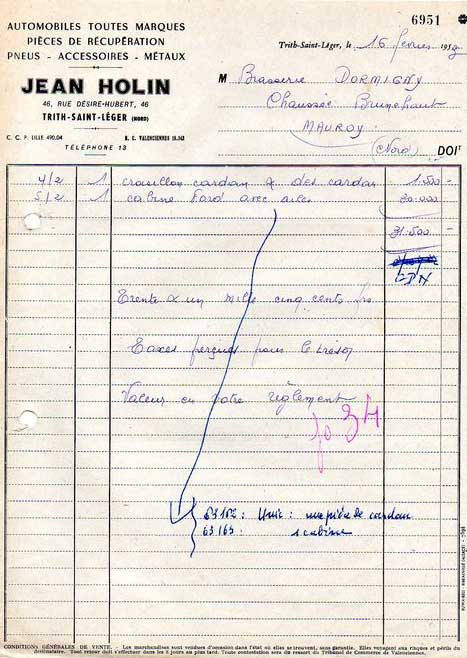 6951
AUTOMOBILES TOUTES MARQUES
PIÈCES DE RÉCUPÉRATION
PNEUS - ACCESSOIRES - MÉTAUX
JEAN HOLIN
46, RUE DÉSIRE-HUBERT, 46
TRITH-SAINT-LÉGER (NORD)
C. C. P. LILLE 490.04 R. C. VALENCIENNES
TÉLÉPHONE 13
Trith-Saint-Léger, le 16 février 195
M Brasserie DORMIGNY
Chaussée Brunehaut
MAUROY
(Nord) DOIT
4/2 1 croisillon cardan & des cardan 1.500 -
5/2 1 cabine Ford avec ailes 30.000
31.500 -
Trente & un mille cinq cents frs
Taxes perçues pour le trésor
Valeur en votre règlement
fo 34
63162 : Unic : une pièce de cardan
63163 : 1 cabine
CONDITIONS GÉNÉRALES DE VENTE. - Les marchandises sont vendues d'occasion dans l'état où elles se trouvent, sans garantie. Elles voyagent aux risques et périls du
destinataire. Tout retour doit s'effectuer dans les 8 jours au plus tard. Toute contestation sera du ressort du Tribunal de Commerce de Valenciennes.